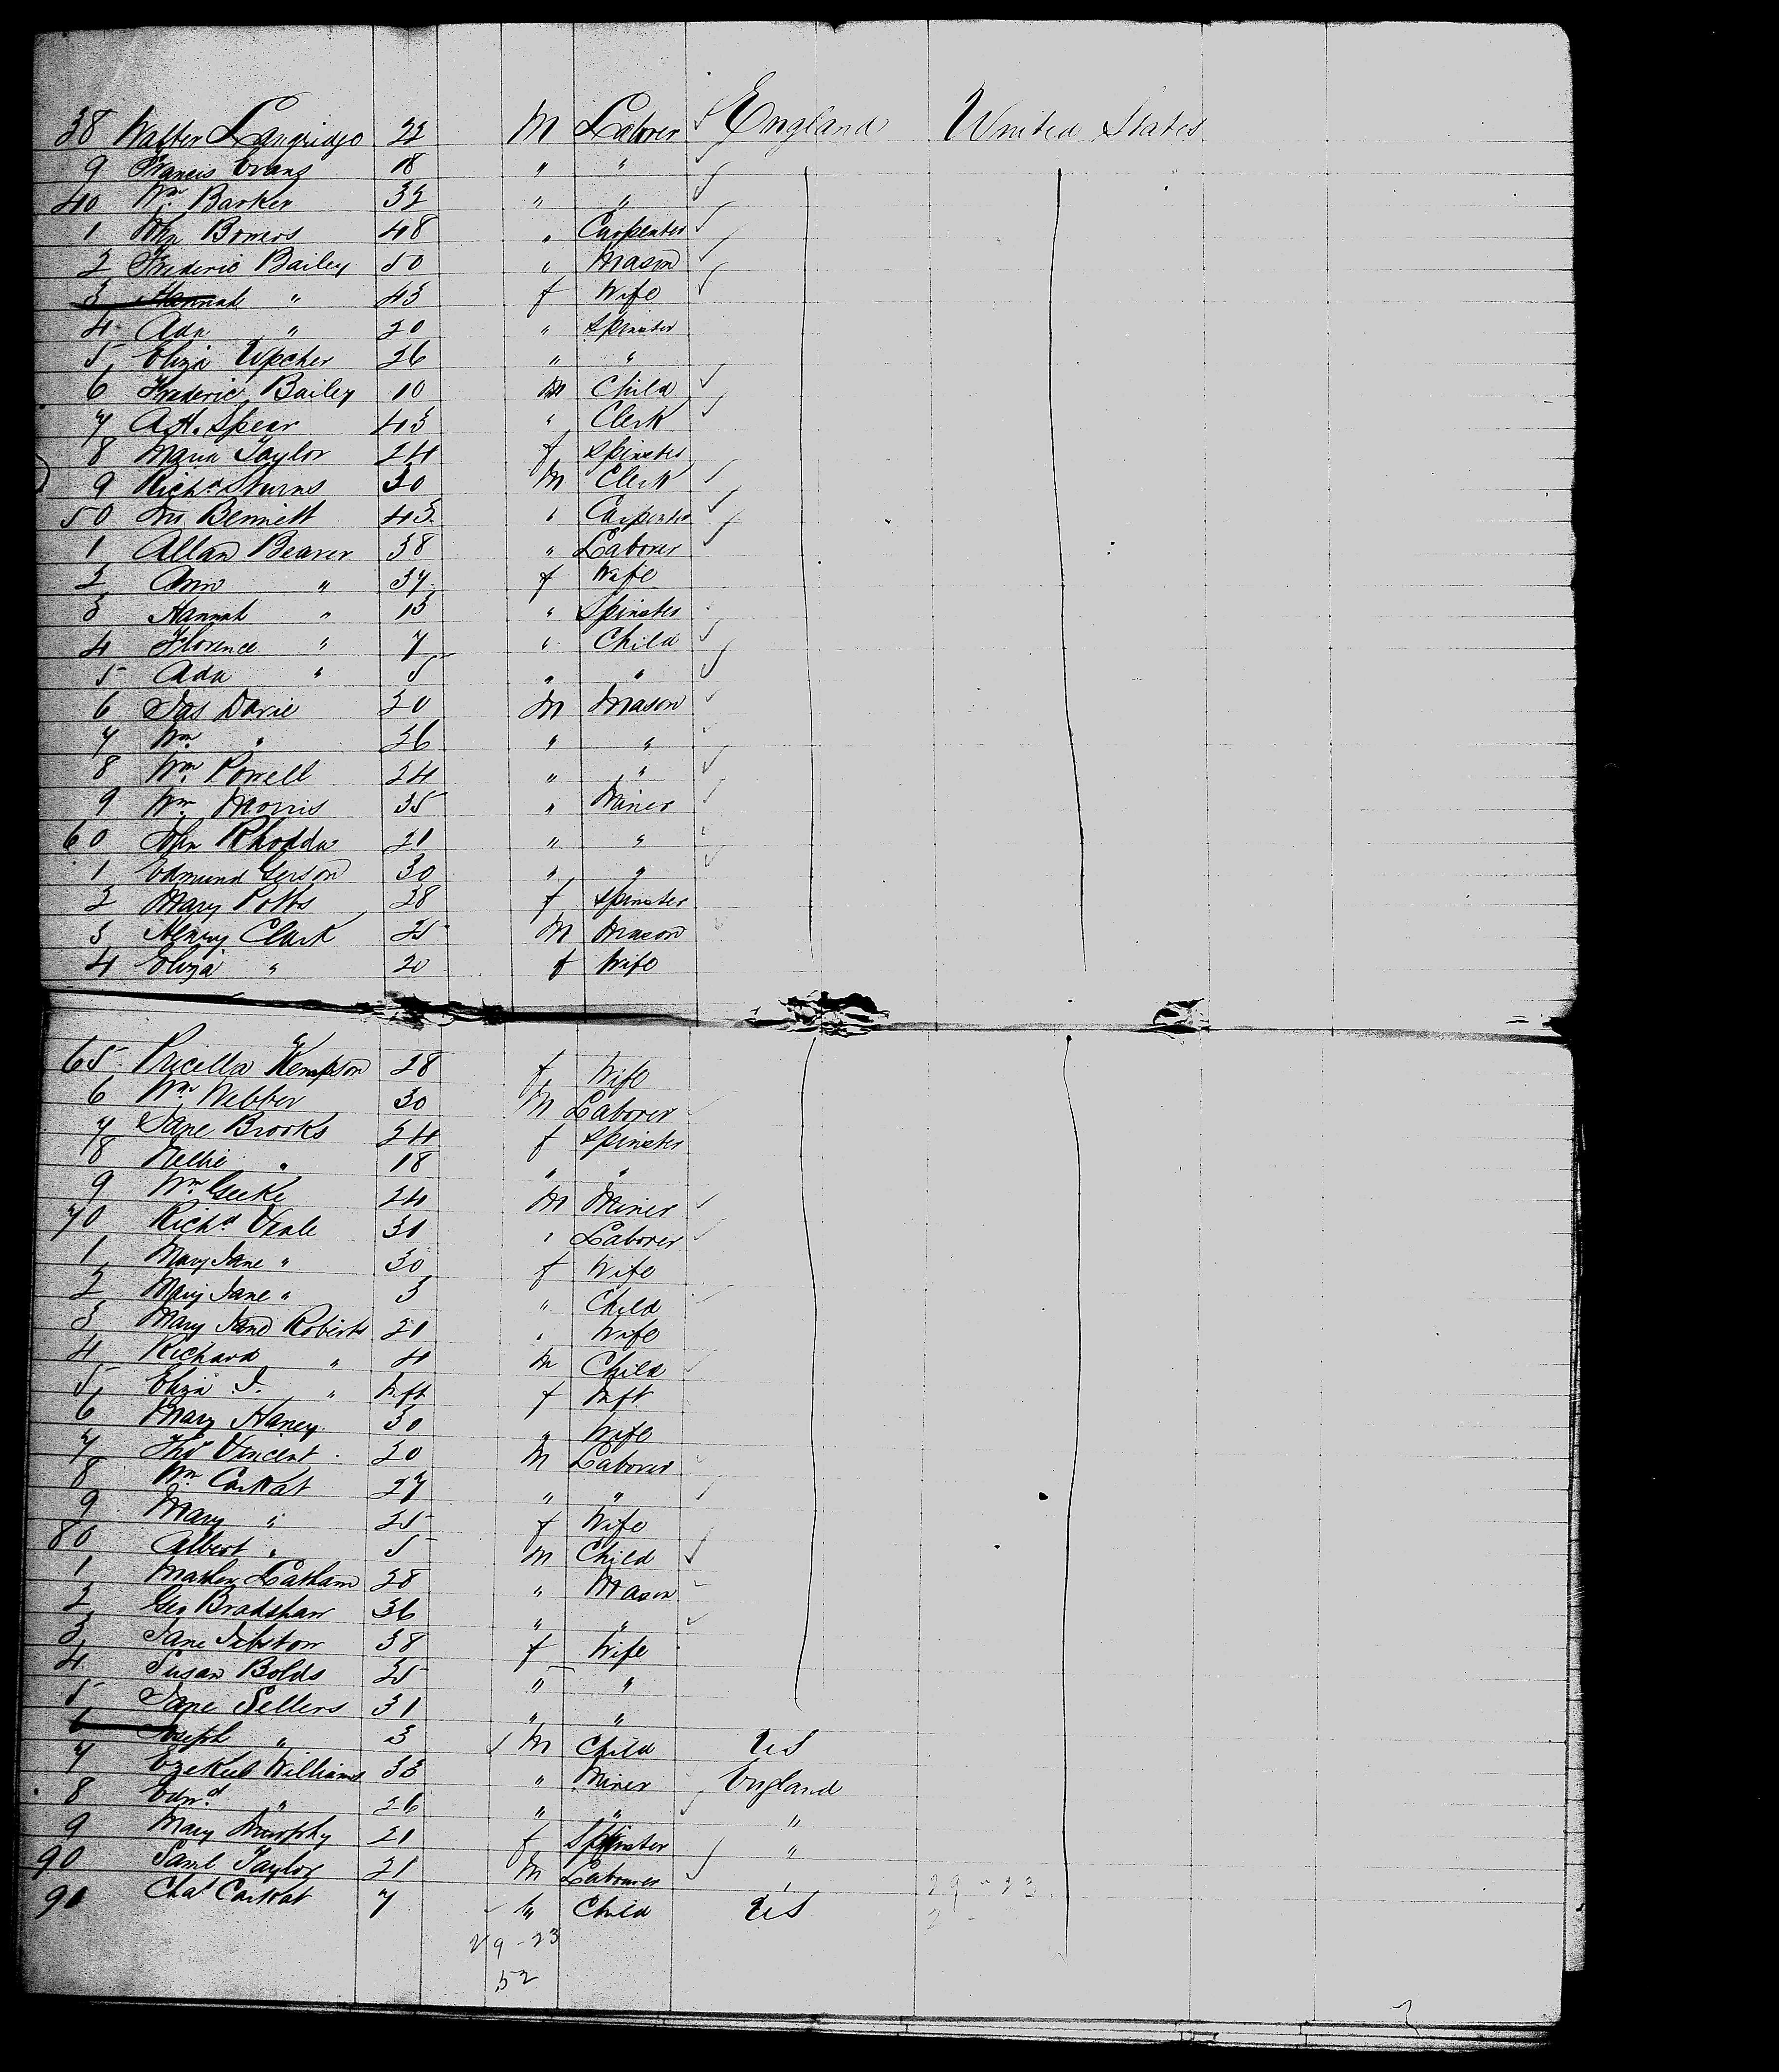 38 Walter Langridge 22 M Laborer England United States
9 Francis Evans 18 " "
40 Wm Barker 32 " "
1 John Bowers 48 " Carpenter
2 Frederic Bailey 50 " Mason
3 Hannah " 43 f Wife
4 Ada " 20 " Spinster
5 Eliza Upcher 26 " "
6 Frederic Bailey 10 M Child
7 A.H. Spear 43 " Clerk
8 Maria Taylor 24 f Spinster
9 Richd Sturns 30 M Clerk
50 Bennett 43 " Carpenter
1 Allan Bearer 38 " Laborer
2 Ann " 37 f Wife
3 Hannah " 13 " Spinster
4 Florence " 7 " Child
5 Ada " 5 " "
6 Jas Davie 20 M Mason
7 Wm " 26 " "
8 Wm Powell 24 " "
9 Wm Morris 35 " Miner
60 John Rhodda 21 " "
1 Edmund Gerson 30 " "
2 Mary Potts 28 f Spinster
3 Henry Clark 25 M Mason
4 Eliza " 20 f Wife
65 Pricella Kempson 28 f Wife
6 Wm Webber 30 M Laborer
7 Jane Brooks 24 f Spinster
8 Nellie " 18 " "
9 Wm Geeke 24 M Miner
70 Richd Veale 31 " Laborer
1 Mary Jane " 30 f Wife
2 Mary Jane " 3 " Child
3 Mary Jane Roberts 21 " Wife
4 Richard " 4 M Child
5 Eliza J. " Inft f Inft
6 Mary Haney 30 " Wife
7 Thos Vincent 20 M Laborer
8 Wm Carkat 27 " "
9 Mary " 25 f Wife
80 Albert " 5 M Child
1 Latham 28 " Mason
2 Geo Bradshaw 36 " "
3 Jane 38 f Wife
4 Susan Bolds 25 " "
5 Jane Sellers 31 " "
6 Joseph " 3 M Child US
7 Ezekiel Williams 33 " Miner England
8 Edwd " 26 " " "
9 Mary Murphy 21 f Spinster "
90 Saml Taylor 21 M Labourer " 29-23
91 Chas Carkat 7 " Child US 2
29-23
52